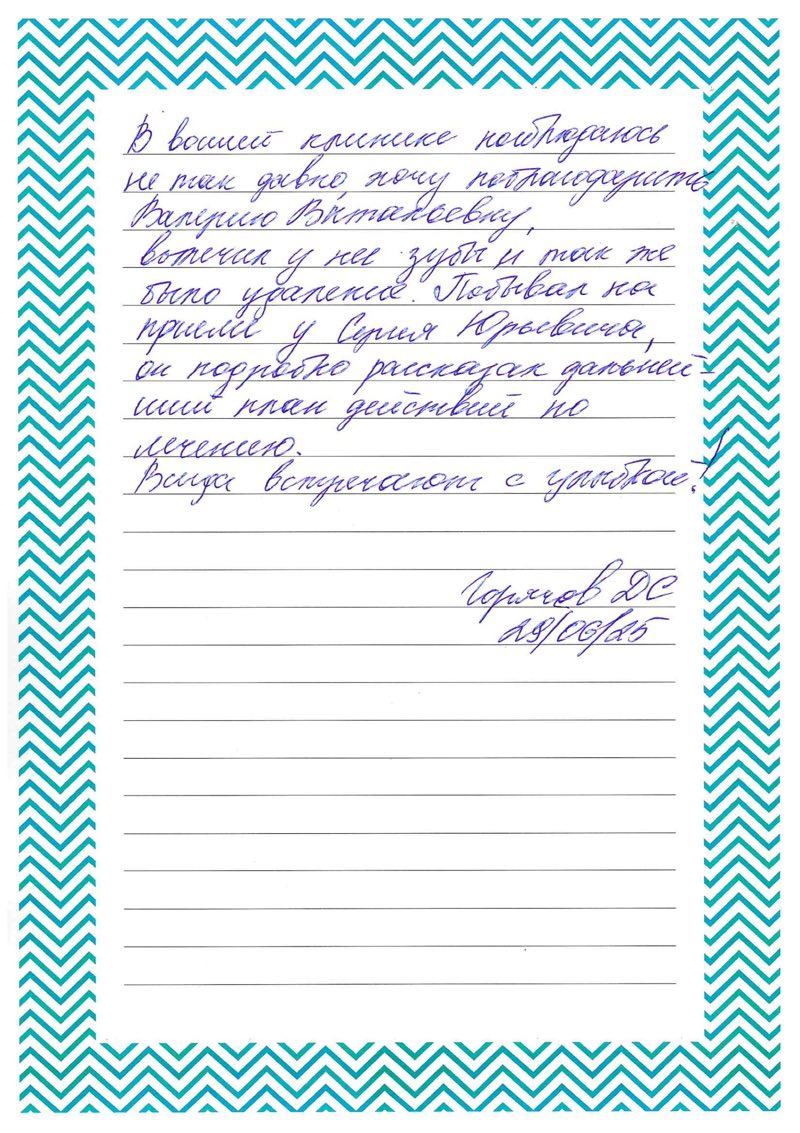 В вашей клинике понаблюдаюсь
не так давно, хочу поблагодарить
Валерию Витальевну,
вылечил у нее зубы и так же
было удаление. Побывал на
приеме у Сергея Юрьевича,
он подробно рассказал дальней-
ший план действий по
лечению.
Всегда встречают с улыбкой!
Горячов ДС
29/06/25